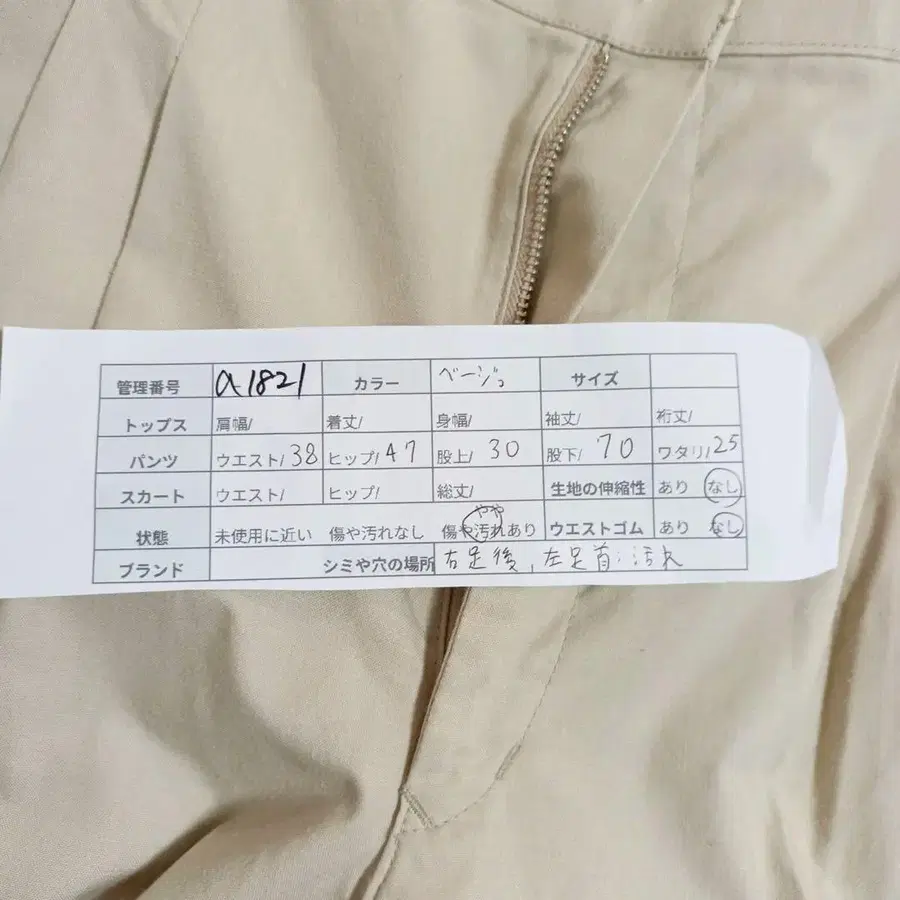 管理番号 a1821 カラー ベージュ サイズ
トップス 肩幅/ 着丈/ 身幅/ 袖丈/ 裄丈/
パンツ ウエスト/38 ヒップ/47 股上/30 股下/70 ワタリ/25
スカート ウエスト/ ヒップ/ 総丈/ 生地の伸縮性 あり なし
やや
状態 未使用に近い 傷や汚れなし 傷や汚れあり ウエストゴム あり なし
ブランド シミや穴の場所 右足後、左足首:汚れ